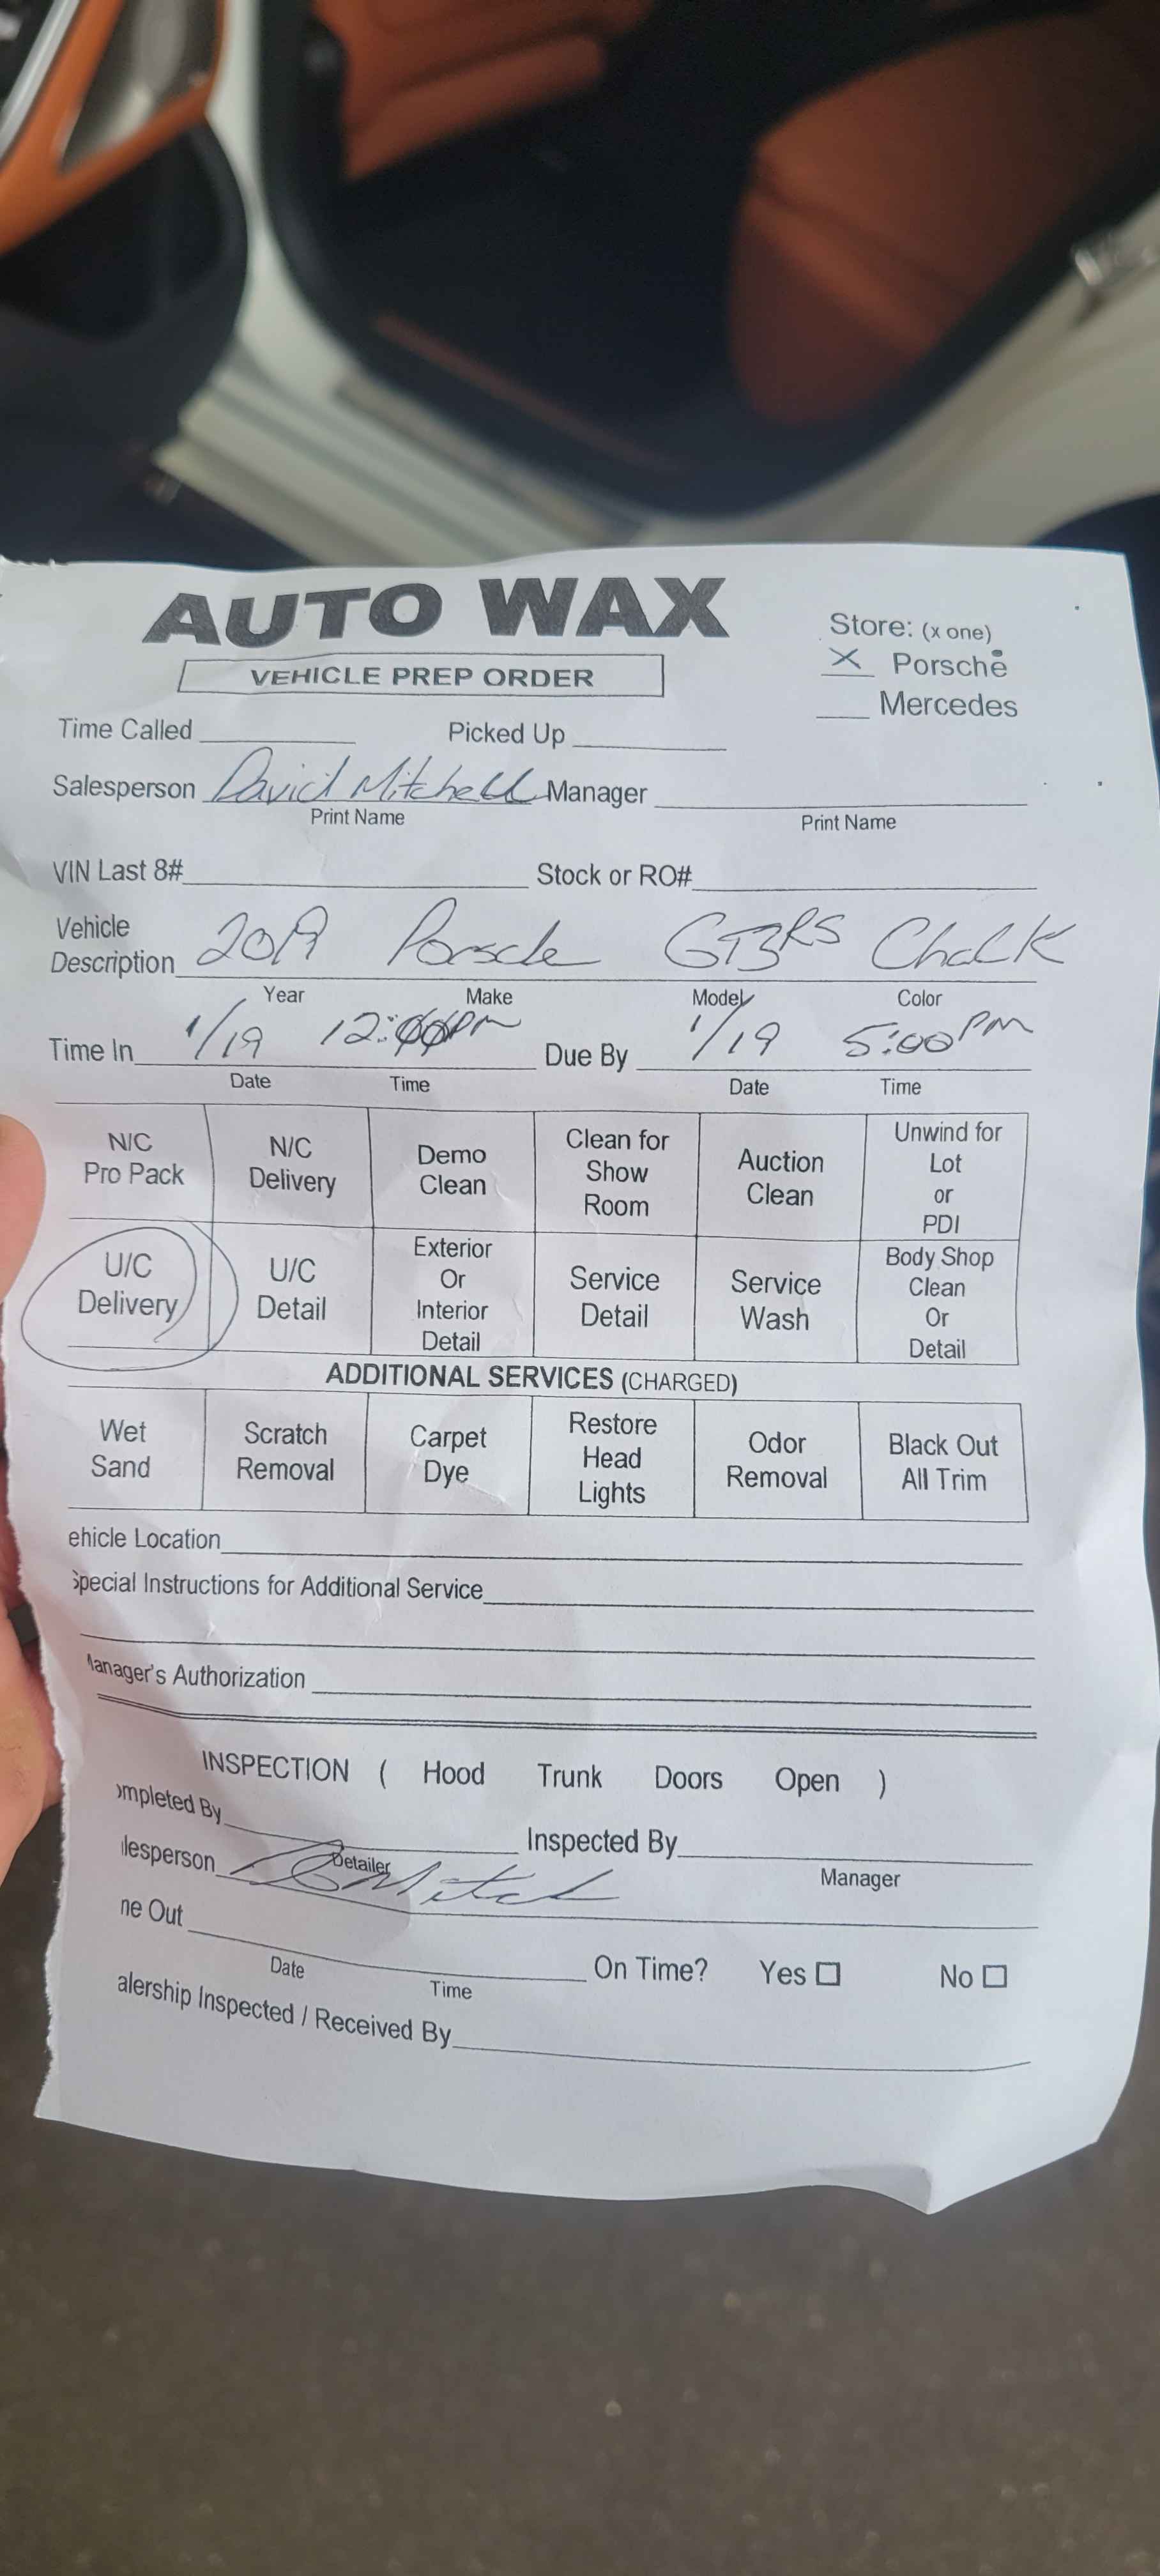 AUTO WAX
VEHICLE PREP ORDER
Store: (x one)
X Porsche
Mercedes
Time Called Picked Up
Salesperson David Mitchell Manager
Print Name Print Name
VIN Last 8# Stock or RO#
Vehicle
Description 2019 Porsche GT3RS Chalk
Year Make Model Color
Time In 1/19 12:00PM Due By 1/19 5:00PM
Date Time Date Time
N/C Pro Pack
N/C Delivery
Demo Clean
Clean for Show Room
Auction Clean
Unwind for Lot or PDI
U/C Delivery
U/C Detail
Exterior Or Interior Detail
Service Detail
Service Wash
Body Shop Clean Or Detail
ADDITIONAL SERVICES (CHARGED)
Wet Sand
Scratch Removal
Carpet Dye
Restore Head Lights
Odor Removal
Black Out All Trim
ehicle Location
Special Instructions for Additional Service
Manager's Authorization
INSPECTION ( Hood Trunk Doors Open )
ompleted By Inspected By
Detailer Manager
lesperson
ne Out On Time? Yes No
Date Time
alership Inspected / Received By